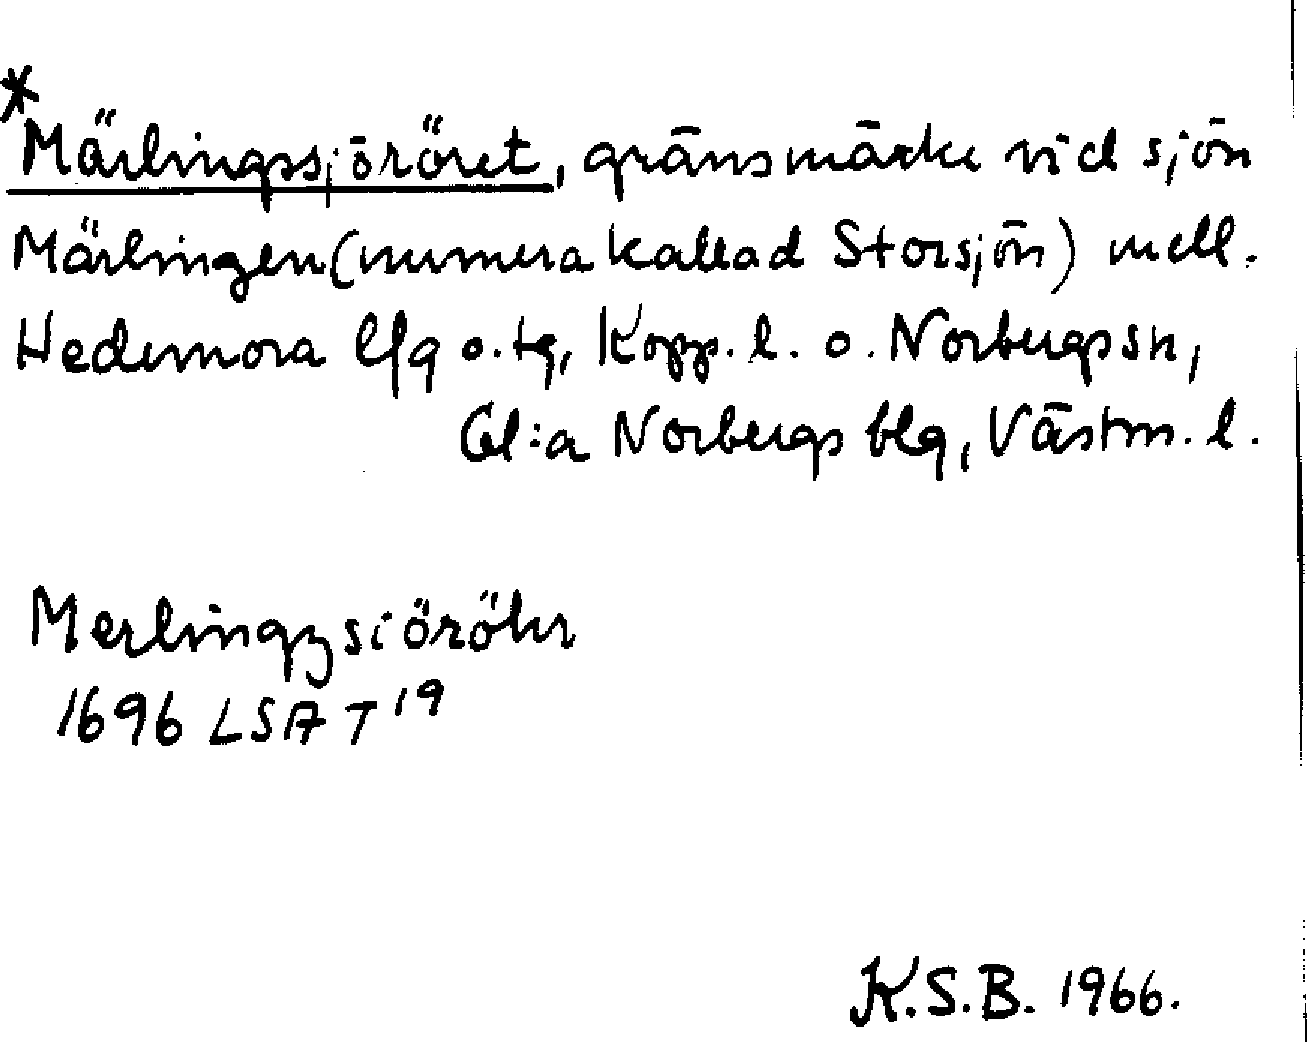 *Märlingssjöröret, gränsmärke vid sjön
Märlingen (numera kallad Storsjön) mell.
Hedemora lfg o. tg, Kopp. l. o. Norbergs sn,
Gl:a Norbergs blg, Västm. l.
Merlingzsiöröhr
1696 LSA T 19
K.S.B. 1966.